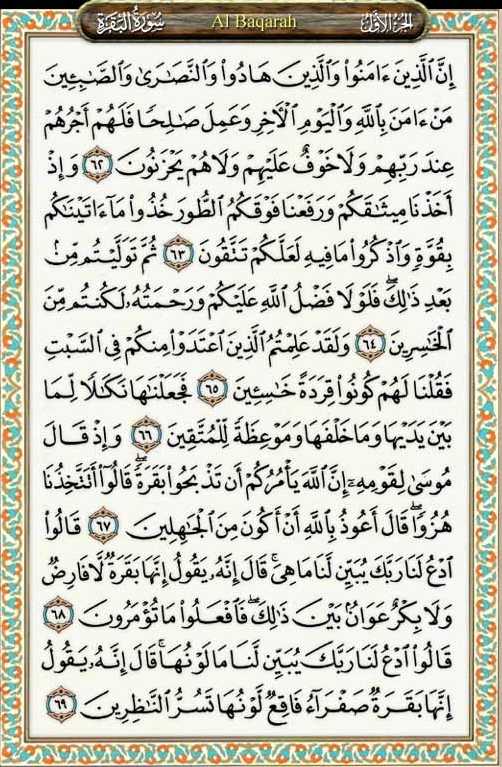 سُورَةُ البَقَرَةِ Al Baqarah الجزء الأول
إِنَّ الَّذِينَ ءَامَنُوا۟ وَالَّذِينَ هَادُوا۟ وَالنَّصَٰرَىٰ وَالصَّٰبِـِٔينَ
مَنْ ءَامَنَ بِاللَّهِ وَالْيَوْمِ الْءَاخِرِ وَعَمِلَ صَٰلِحًا فَلَهُمْ أَجْرُهُمْ
عِندَ رَبِّهِمْ وَلَا خَوْفٌ عَلَيْهِمْ وَلَا هُمْ يَحْزَنُونَ ٦٢ وَإِذْ
أَخَذْنَا مِيثَٰقَكُمْ وَرَفَعْنَا فَوْقَكُمُ الطُّورَ خُذُوا۟ مَا ءَاتَيْنَٰكُم
بِقُوَّةٍ وَاذْكُرُوا۟ مَا فِيهِ لَعَلَّكُمْ تَتَّقُونَ ٦٣ ثُمَّ تَوَلَّيْتُم مِّنۢ
بَعْدِ ذَٰلِكَ ۖ فَلَوْلَا فَضْلُ اللَّهِ عَلَيْكُمْ وَرَحْمَتُهُۥ لَكُنتُم مِّنَ
الْخَٰسِرِينَ ٦٤ وَلَقَدْ عَلِمْتُمُ الَّذِينَ اعْتَدَوْا۟ مِنكُمْ فِي السَّبْتِ
فَقُلْنَا لَهُمْ كُونُوا۟ قِرَدَةً خَٰسِـِٔينَ ٦٥ فَجَعَلْنَٰهَا نَكَٰلًا لِّمَا
بَيْنَ يَدَيْهَا وَمَا خَلْفَهَا وَمَوْعِظَةً لِّلْمُتَّقِينَ ٦٦ وَإِذْ قَالَ
مُوسَىٰ لِقَوْمِهِۦٓ إِنَّ اللَّهَ يَأْمُرُكُمْ أَن تَذْبَحُوا۟ بَقَرَةً ۖ قَالُوٓا۟ أَتَتَّخِذُنَا
هُزُوًا ۖ قَالَ أَعُوذُ بِاللَّهِ أَنْ أَكُونَ مِنَ الْجَٰهِلِينَ ٦٧ قَالُوا۟
ادْعُ لَنَا رَبَّكَ يُبَيِّن لَّنَا مَا هِيَ ۚ قَالَ إِنَّهُۥ يَقُولُ إِنَّهَا بَقَرَةٌ لَّا فَارِضٌ
وَلَا بِكْرٌ عَوَانٌۢ بَيْنَ ذَٰلِكَ ۖ فَافْعَلُوا۟ مَا تُؤْمَرُونَ ٦٨
قَالُوا۟ ادْعُ لَنَا رَبَّكَ يُبَيِّن لَّنَا مَا لَوْنُهَا ۚ قَالَ إِنَّهُۥ يَقُولُ
إِنَّهَا بَقَرَةٌ صَفْرَآءُ فَاقِعٌ لَّوْنُهَا تَسُرُّ النَّٰظِرِينَ ٦٩